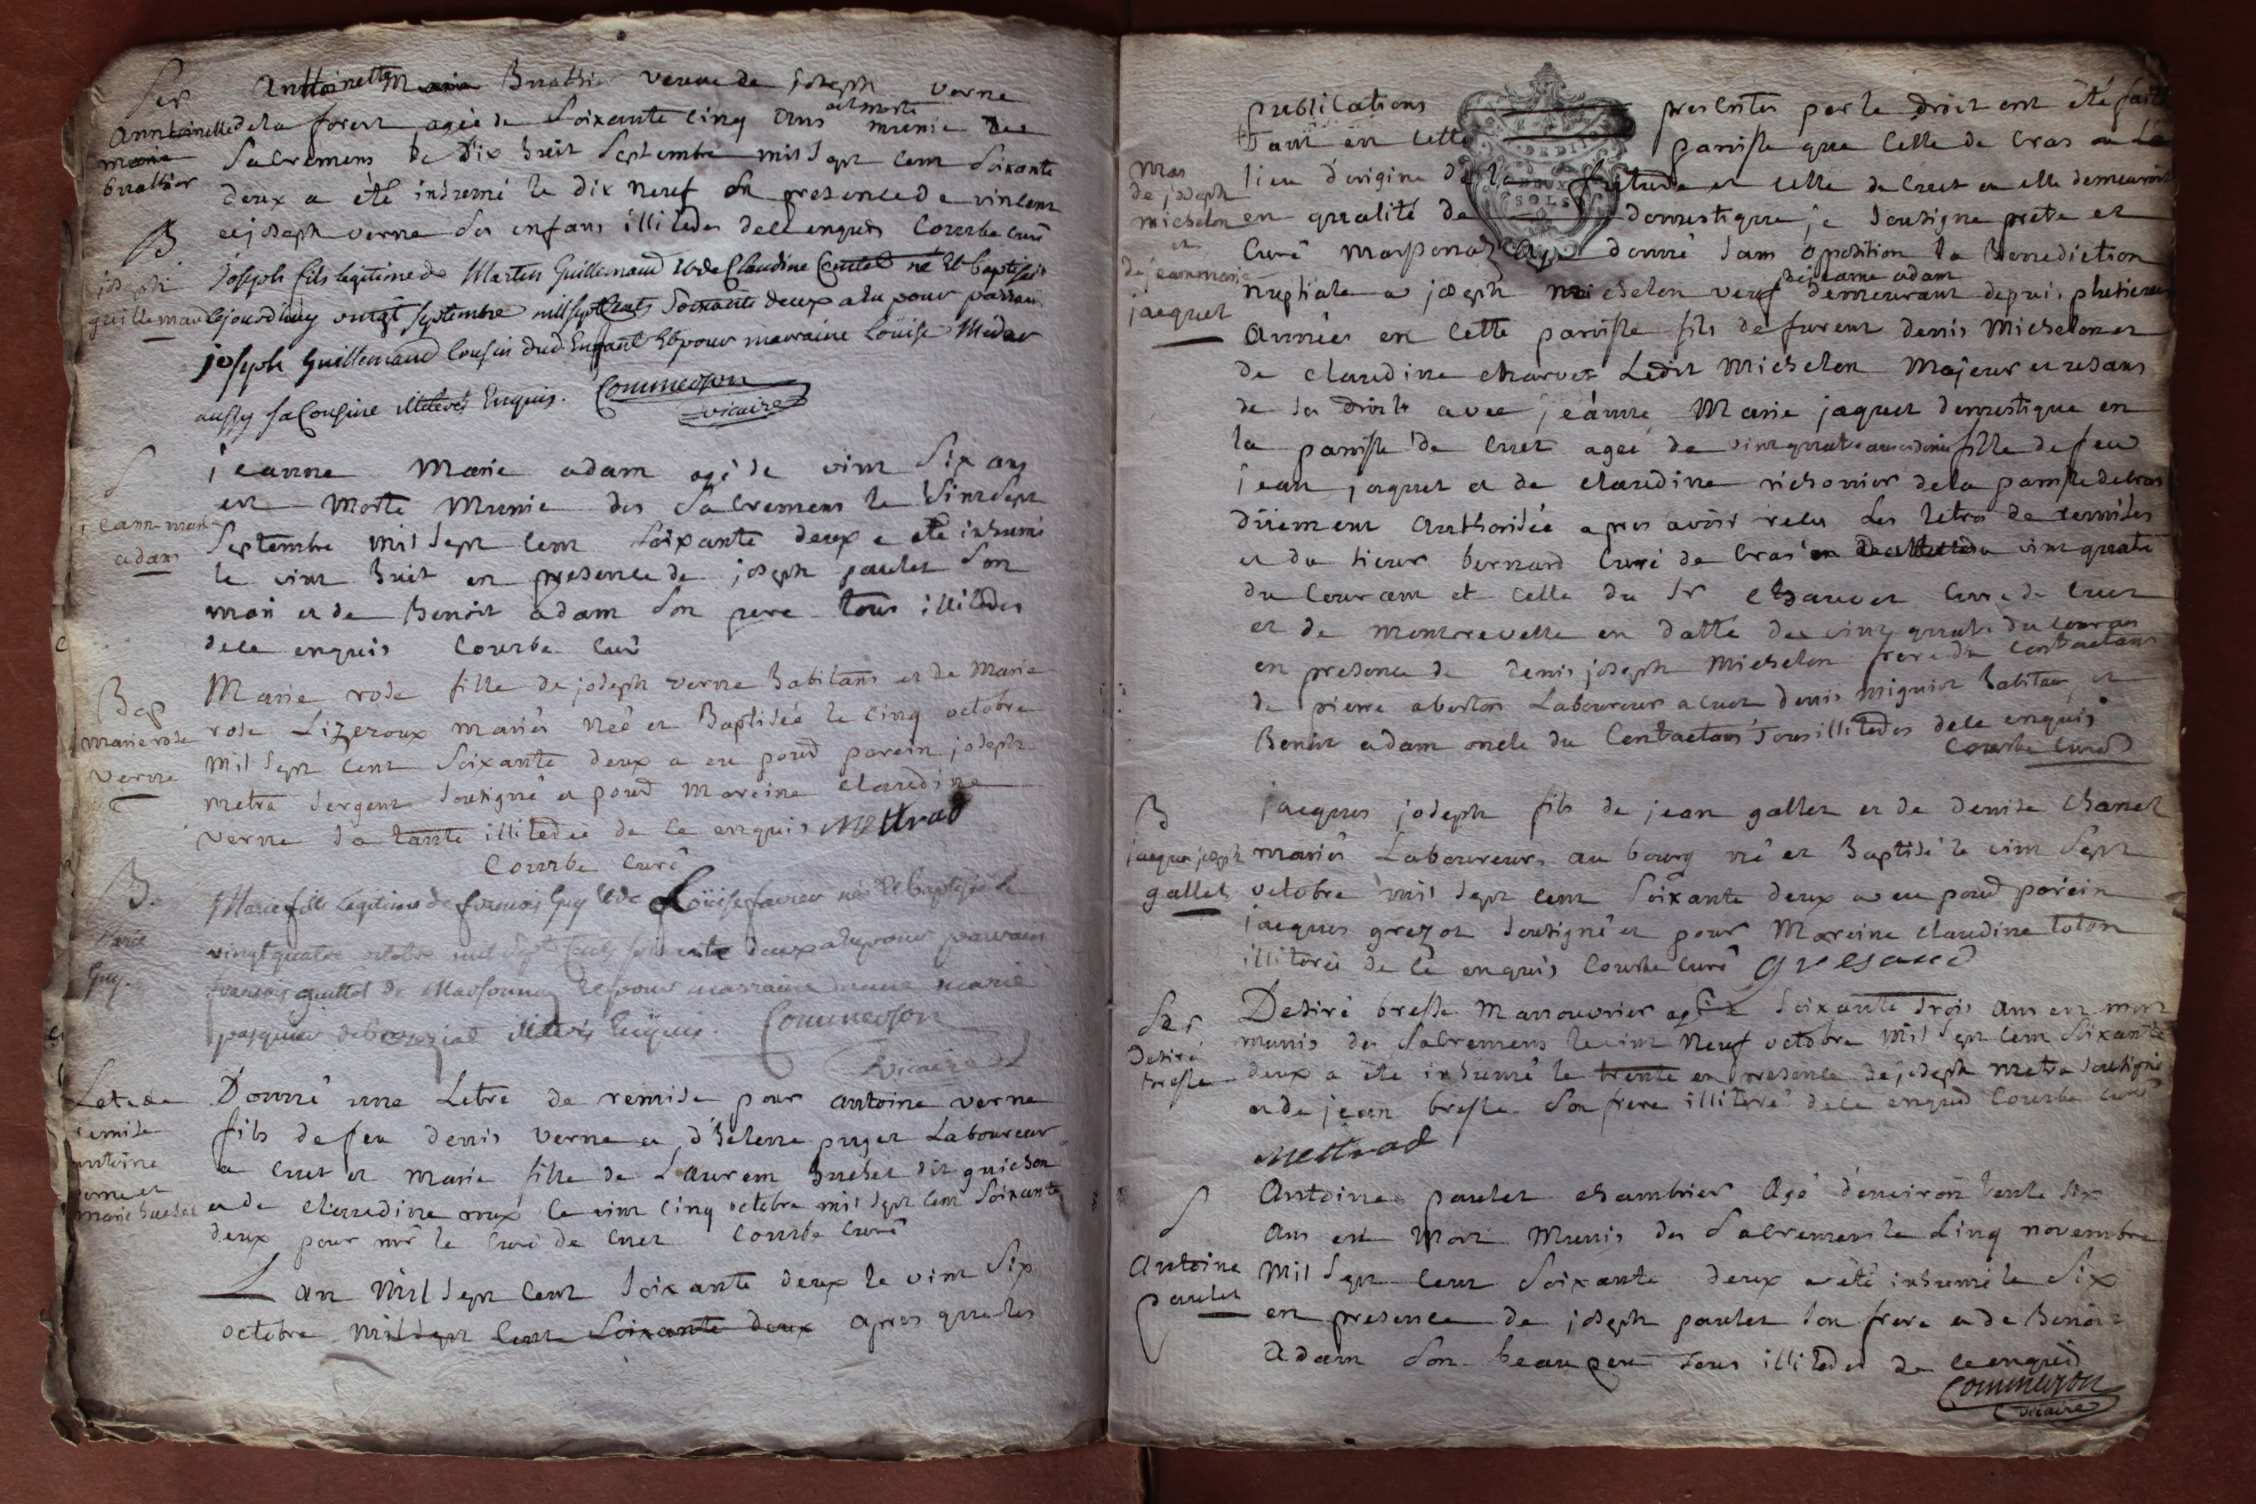 Sep
Anttoinette Maria Buathier veuve de joseph verne
Anntoinette
maria
buathier
dela forest agée de Soixante cinq ans est morte munie des
Sacremens le dix huit Septembre mil Sept cent Soixante
deux a été inhumé le dix neuf en presence de vincent
et joseph verne Ses enfans illiteres de ce enquis Courbe curé
B
joseph
guillemaud
Joseph fils legitime de Marten Guillemaud et de Claudine né et baptisé
cejourdhuy vingt septembre mil sept cents Soixante deux a eu pour parrain
joseph Guillemaud Cousin dud. Enfant et pour marraine Loüise
aussy sa Cousine illiterés Enquis. Commerson
vicaire
S
jeann marie
adam
jeanne Marie adam agé de vint Six ans
est Morte Munie des Sacremens le vint Sept
Septembre mil Sept cent Soixante deux a été inhumé
le vint huit en presence de joseph paulet Son
mari et de Benoit adam Son pere tous illiteres
dece enquis Courbe curé
Bap
marie rose
verne
Marie rose fille de joseph verne habitans et de Marie
rose Lizeroux mariés néé et Baptisée le cinq octobre
mil Sept cent Soixante deux a eu pour parein joseph
metra Sergent Sousigné et pour Mareine claudine
verne Sa tante illiterée de ce enquis Mettrad
Courbe curé
B.
Marie
Guy.
Marie fille legitime de francois Guy et de Loüise née et baptisée le
vingt quatre octobre mil Sept Cents soixante deux a eu pour parrain
francois guillot de Marsonnay et pour marraine marie
pasquier illiterés Enquis. Commerson
vicaire
Letre de
remise
antoine
verne et
marie buchet
Donné une Letre de remise pour antoine verne
fils de feu denis verne et d'helene puget Laboureur
a Cuet et marie fille de Laurent buchet dit guichon
et de claudine le vint cinq octobre mil Sept cent Soixante
deux pour mr le curé de Cuet Courbe curé
L an mil Sept cent Soixante deux le vint Six
octobre mil Sept cent Soixante deux apres que les
publications prescrites par le droit ont été faites
tant en cette paroisse que celle de Cras
lieu d'origine de la future et celle de Cuet ou elle demeuroit
mar
de joseph
michelon
et
de jeanmarie
jaquet
en qualité de domestique je Sousigne pretre et
Curé Marsonas ay donné Sans opposition la Benediction
nuptiale a joseph Michelon veuf de jeanne adam demeurant depuis plusieurs
années en cette paroisse fils de furent denis Michelon et
de claudine charvet Ledit Michelon Majeur et usans
de Ses droits avec jeanne Marie jaquet domestique en
la paroisse de Cuet agée de vint quatre ans et demi fille de feu
jean jaquet et de claudine richonnier de la paroisse de Cras
düement authorisée apres avoir recu Les letres de remises
et du Sieur bernard Curé de Cras en vint quatre
du Courant et celle du Sr chauvet Curé de Cuet
et de montrevelle en datte du vint quatre du courant
en presence de denis joseph Michelon frere du Contactant
de pierre aberton Laboureur a cuet denis mignion habitan, et
Benoit adam oncle du Contactans Tous illiteres dece enquis
Courbe curé
B
jaque joseph
gallet
jacques joseph fils de jean gallet et de denise Chanel
mariés Laboureurs au bourg né et Baptisé le vint Sept
octobre mil Sept cent Soixante deux a eu pour parein
jacques grezot Sousigné et pour Mareine claudine toton
illiterée de ce enquis Courbe curé gresaud
Sep
desiré
bresse
Desiré bresse Manouvrier agé de Soixante trois ans est mort
munis des Sacremens le vint Neuf octobre mil Sept cent Soixante
deux a été inhumé le trente en presence de joseph metra Sousigné
et de jean bresse Son frere illiteré dece enquis Courbe curé
Mettrad
S
Antoine
paulet
Antoine paulet chambrier Agé d'environ trente Six
Ans est Mort Munis des Sacremens le Cinq novembre
Mil Sept cent Soixante deux a été inhumé le Six
en presence de joseph paulet Son frere et de Benoit
Adam Son beau pere tous illiteres de ce enquis
Commerson
vicaire